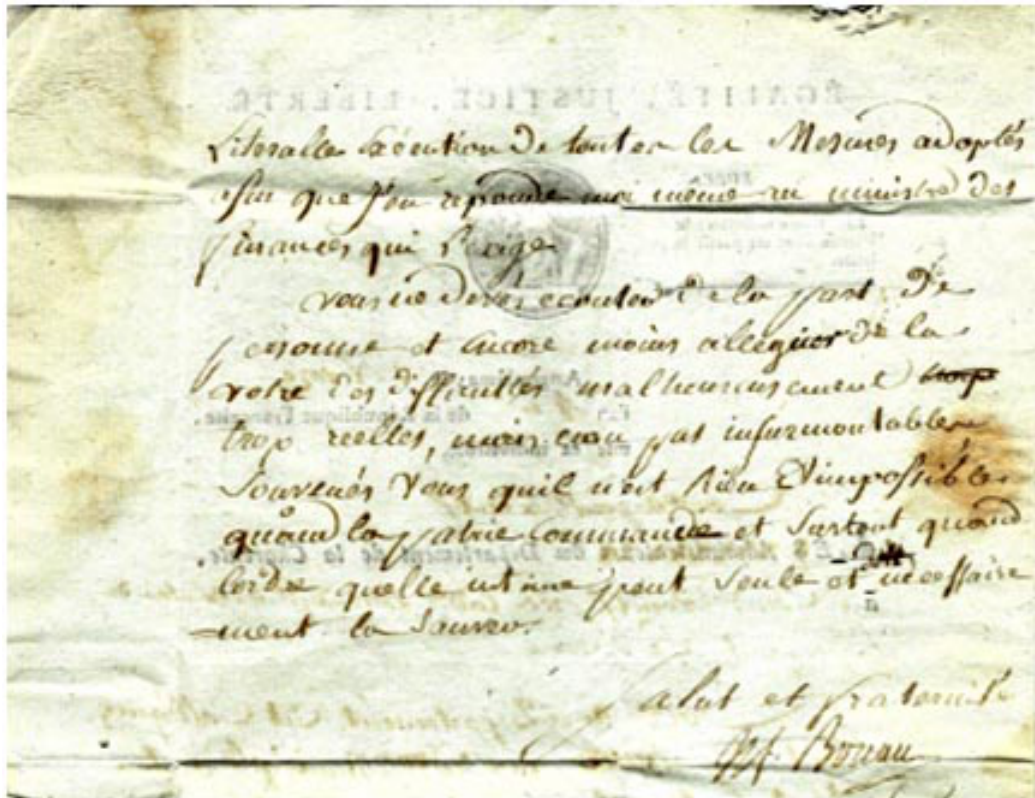 Literalle Exécution de toutes les Mesures adoptés
afin que J'en reponde moi meme au ministre des
finances qui l'exige
vous ne devez ecouter de la part de
personne et encore moins alleguer de la
votre des difficultes malheureusement trop
trop reelles, mais non pas insurmontables
Souvenés Vous quil n'est Rien d'impossible
quand la patrie Commande et Surtout quand
lordre quelle intime peut seule et necessaire
=ment la Sauver.
Salut et fraternité